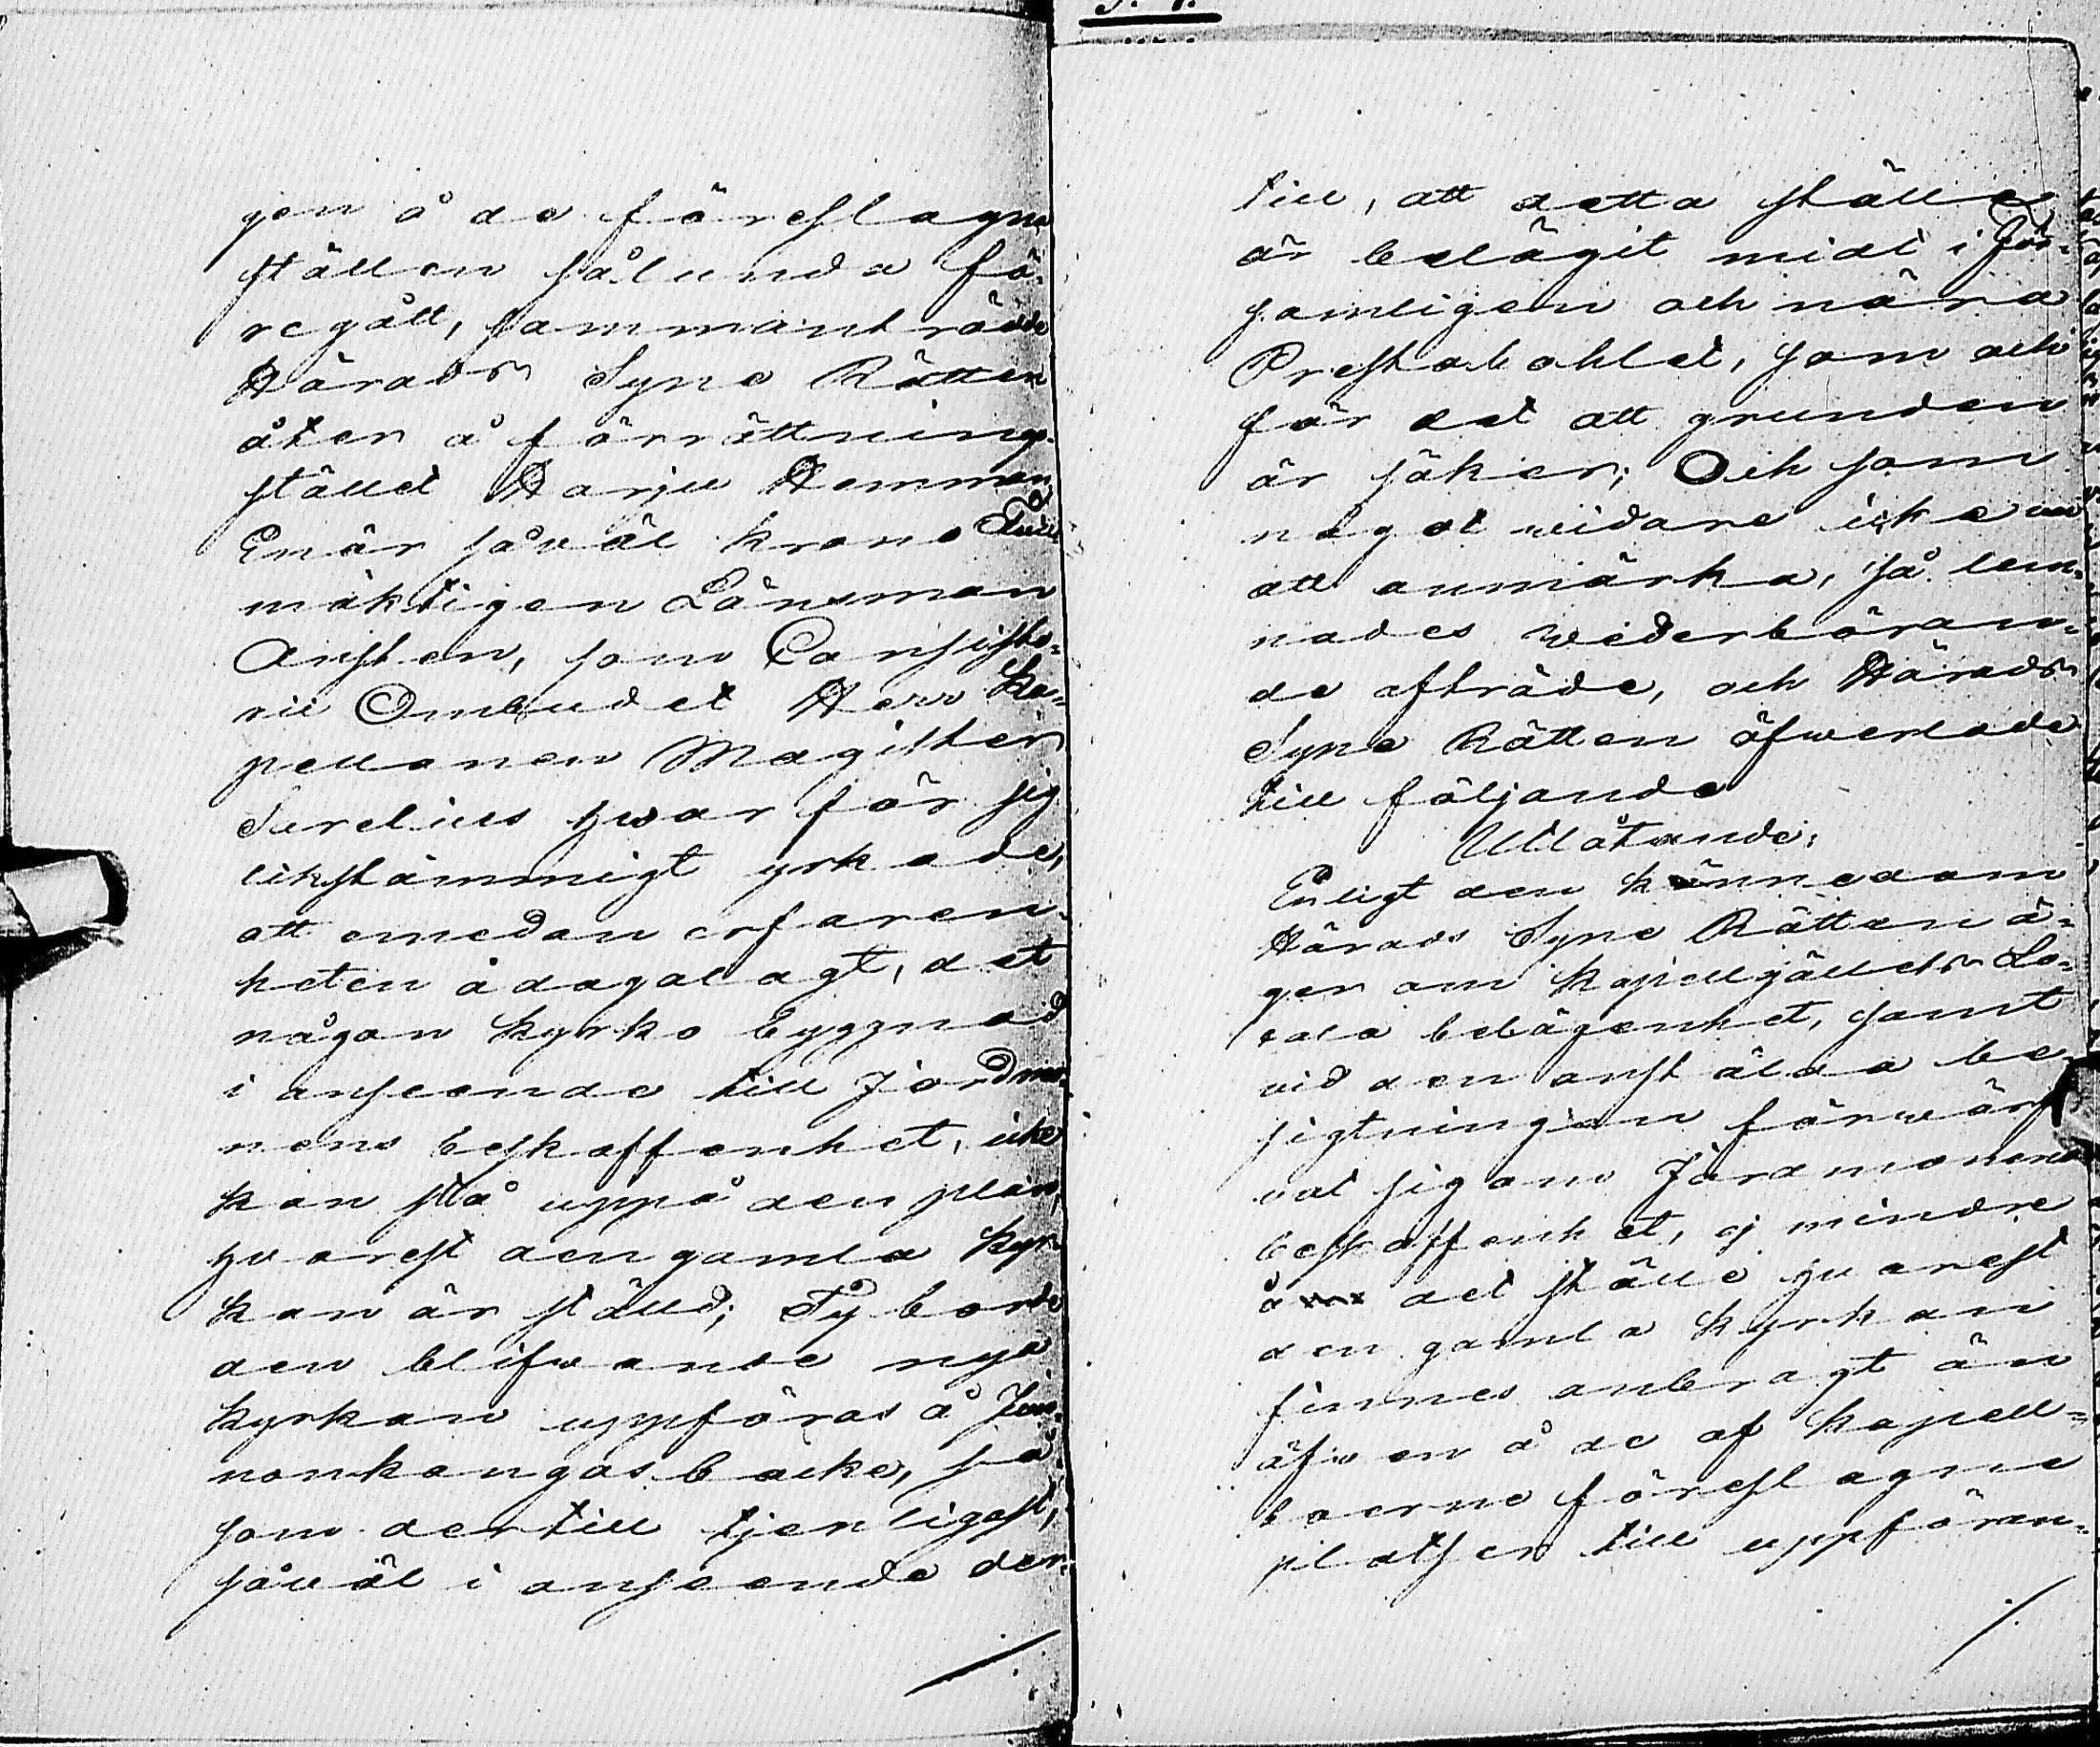 gen å de föreslagne
ställen sålunda fö-
regått, sammanträdde
Härads Syne Rätten
åter å förrättnings-
stället Harju Hemman
Enär såväl krono Full-
mäktigen Länsman
som Consisto-
rii Ombudet Herr Ka-
pellanen Magister
hvar för sig
likstämmigt yrkade,
att emedan erfaren-
heten ådagalagt, att
någon kyrko byggnad
i anseende till Jordmo-
nens beskaffenhet, icke
kan stå uppå den plan,
hvarest den gamla kyr-
kan är ställd; Ty borde
den blifwande nya
kyrkan uppföras å
nonkangas backe, så-
som dertill tjenligast,
såväl i anseende der-
till, att detta ställe
är belägit midt i För-
samligen och nära
Prestabohlet, som och
för det att grunden
är säker; Och som
något widare icke war
att anmärka, så lem-
nades wederböran-
de afträde, och Härads
Syne Rätten öfwerlade
till följande
Utlåtande:
Enligt den kännedom
Härads Syne Rätten ä-
ger om Kapellgällets Lo-
cala belägenhet, samt
vid den anstälda be-
sigtningen förwärf-
vat sig om Jordmonens
beskaffenhet, ej mindre
å det ställe hvarest
den gamla kyrkan
finnes anbragt än
äfwen å de af kapell-
boerne föreslagne
platser till uppföran-